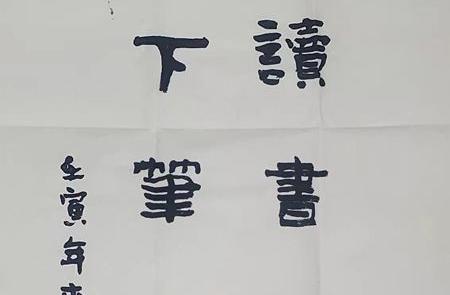 讀書
下筆
壬寅年